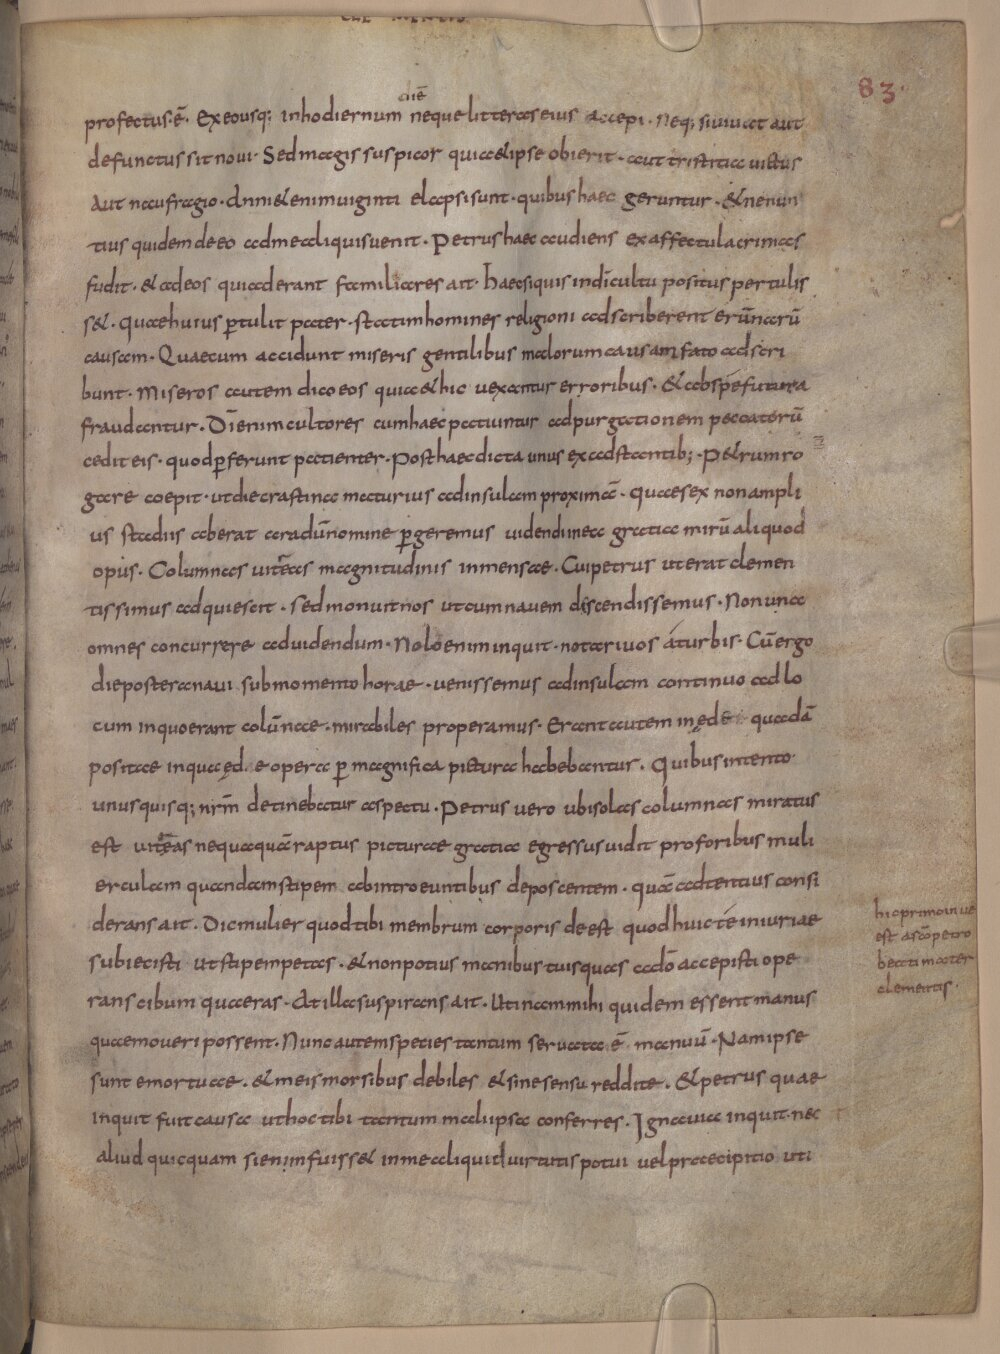 CLEMENTIS
83.
diē
profectus·ē· Exeousq; inhodiernum nequelitteraseius accepi· Neq; siuiuat aut
defunctussitnoui· Sedmagis suspicor quia&ipse obierit· aut tristitia uictus
Aut naufragio· Anni&enimuiginti elapsisunt· quibushaec geruntur· &nenun
tius quidem deeo admealiquisuenit· Petrushaec audiens exaffectulacrimas
fudit· & adeos quiaderant familiares ait· haecsiquis indicultu positus pertulis
s&· quaehuius ptulit pater· statimhomines religioni adscriberent erūnarū
causam· Quaecum accidunt miseris gentilibus malorumcausam fato adscri
bunt· Miseros autem dicoeos quia&hic uexantur erroribus· &abspefutura
fraudantur· Dīenimcultores cumhaecpatiuntur adpurgationem peccatorū
cediteis· quodpferunt patienter· Posthaecdicta unus exadstantib;· P&rumro
gare coepit· utdiecrastina maturius adinsulam proximā· quaesex nonampli
us stadiis aberat aradūnomine pgeremus uidendiinea gratia mirū aliquod
opus· Columnas uitreas magnitudinis inmensae· Cuipetrus uterat clemen
tissimus adquiescit· sedmonuitnos utcumnauem discendissemus· Nonuna
omnes concurrere aduidendum· Noloeniminquit· notariuos áturbis· Cūergo
dieposteranaui submomento horae· uenissemus adinsulam continuo adlo
cum inquoerant colūnae· mirabiles properamus· Erantautem inęde quadā
positae inquaęd e opera p magnifica pictura habebantur· Quibusintento
unusquisq; nrm̄ detinebatur aspectu· Petrus uero ubisolascolumnas miratus
est uitreas nequaquā raptus picturae gratia egressusuidit proforibus muli
erculam quandamstipem abintroeuntibus deposcentem· quā adtentius consi
derans ait· Dicmulier quodtibi membrum corporis deest quodhuicte iniuriae
subiecisti utstipempetas· &nonpotius manibus tuisquas adō accepisti ope
rans cibum quaeras· Atillasuspirans ait· Utinammihi quidem essent manus
quaemoueri possent· Nuncautemspecies tantum seruata ē manuū· Namipse
sunt emortuae· &meismorsibus debiles &sinesensu reddite· &petrus quae
inquit fuitcausa uthoctibi tantum malipsa conferres· Ignauia inquit· nec
aliud quicquam sienimfuiss& inmealiquiduirtutis potui uelpraecipitio uti
hicprimainue
est ascōpetro
beatimater
clementis·